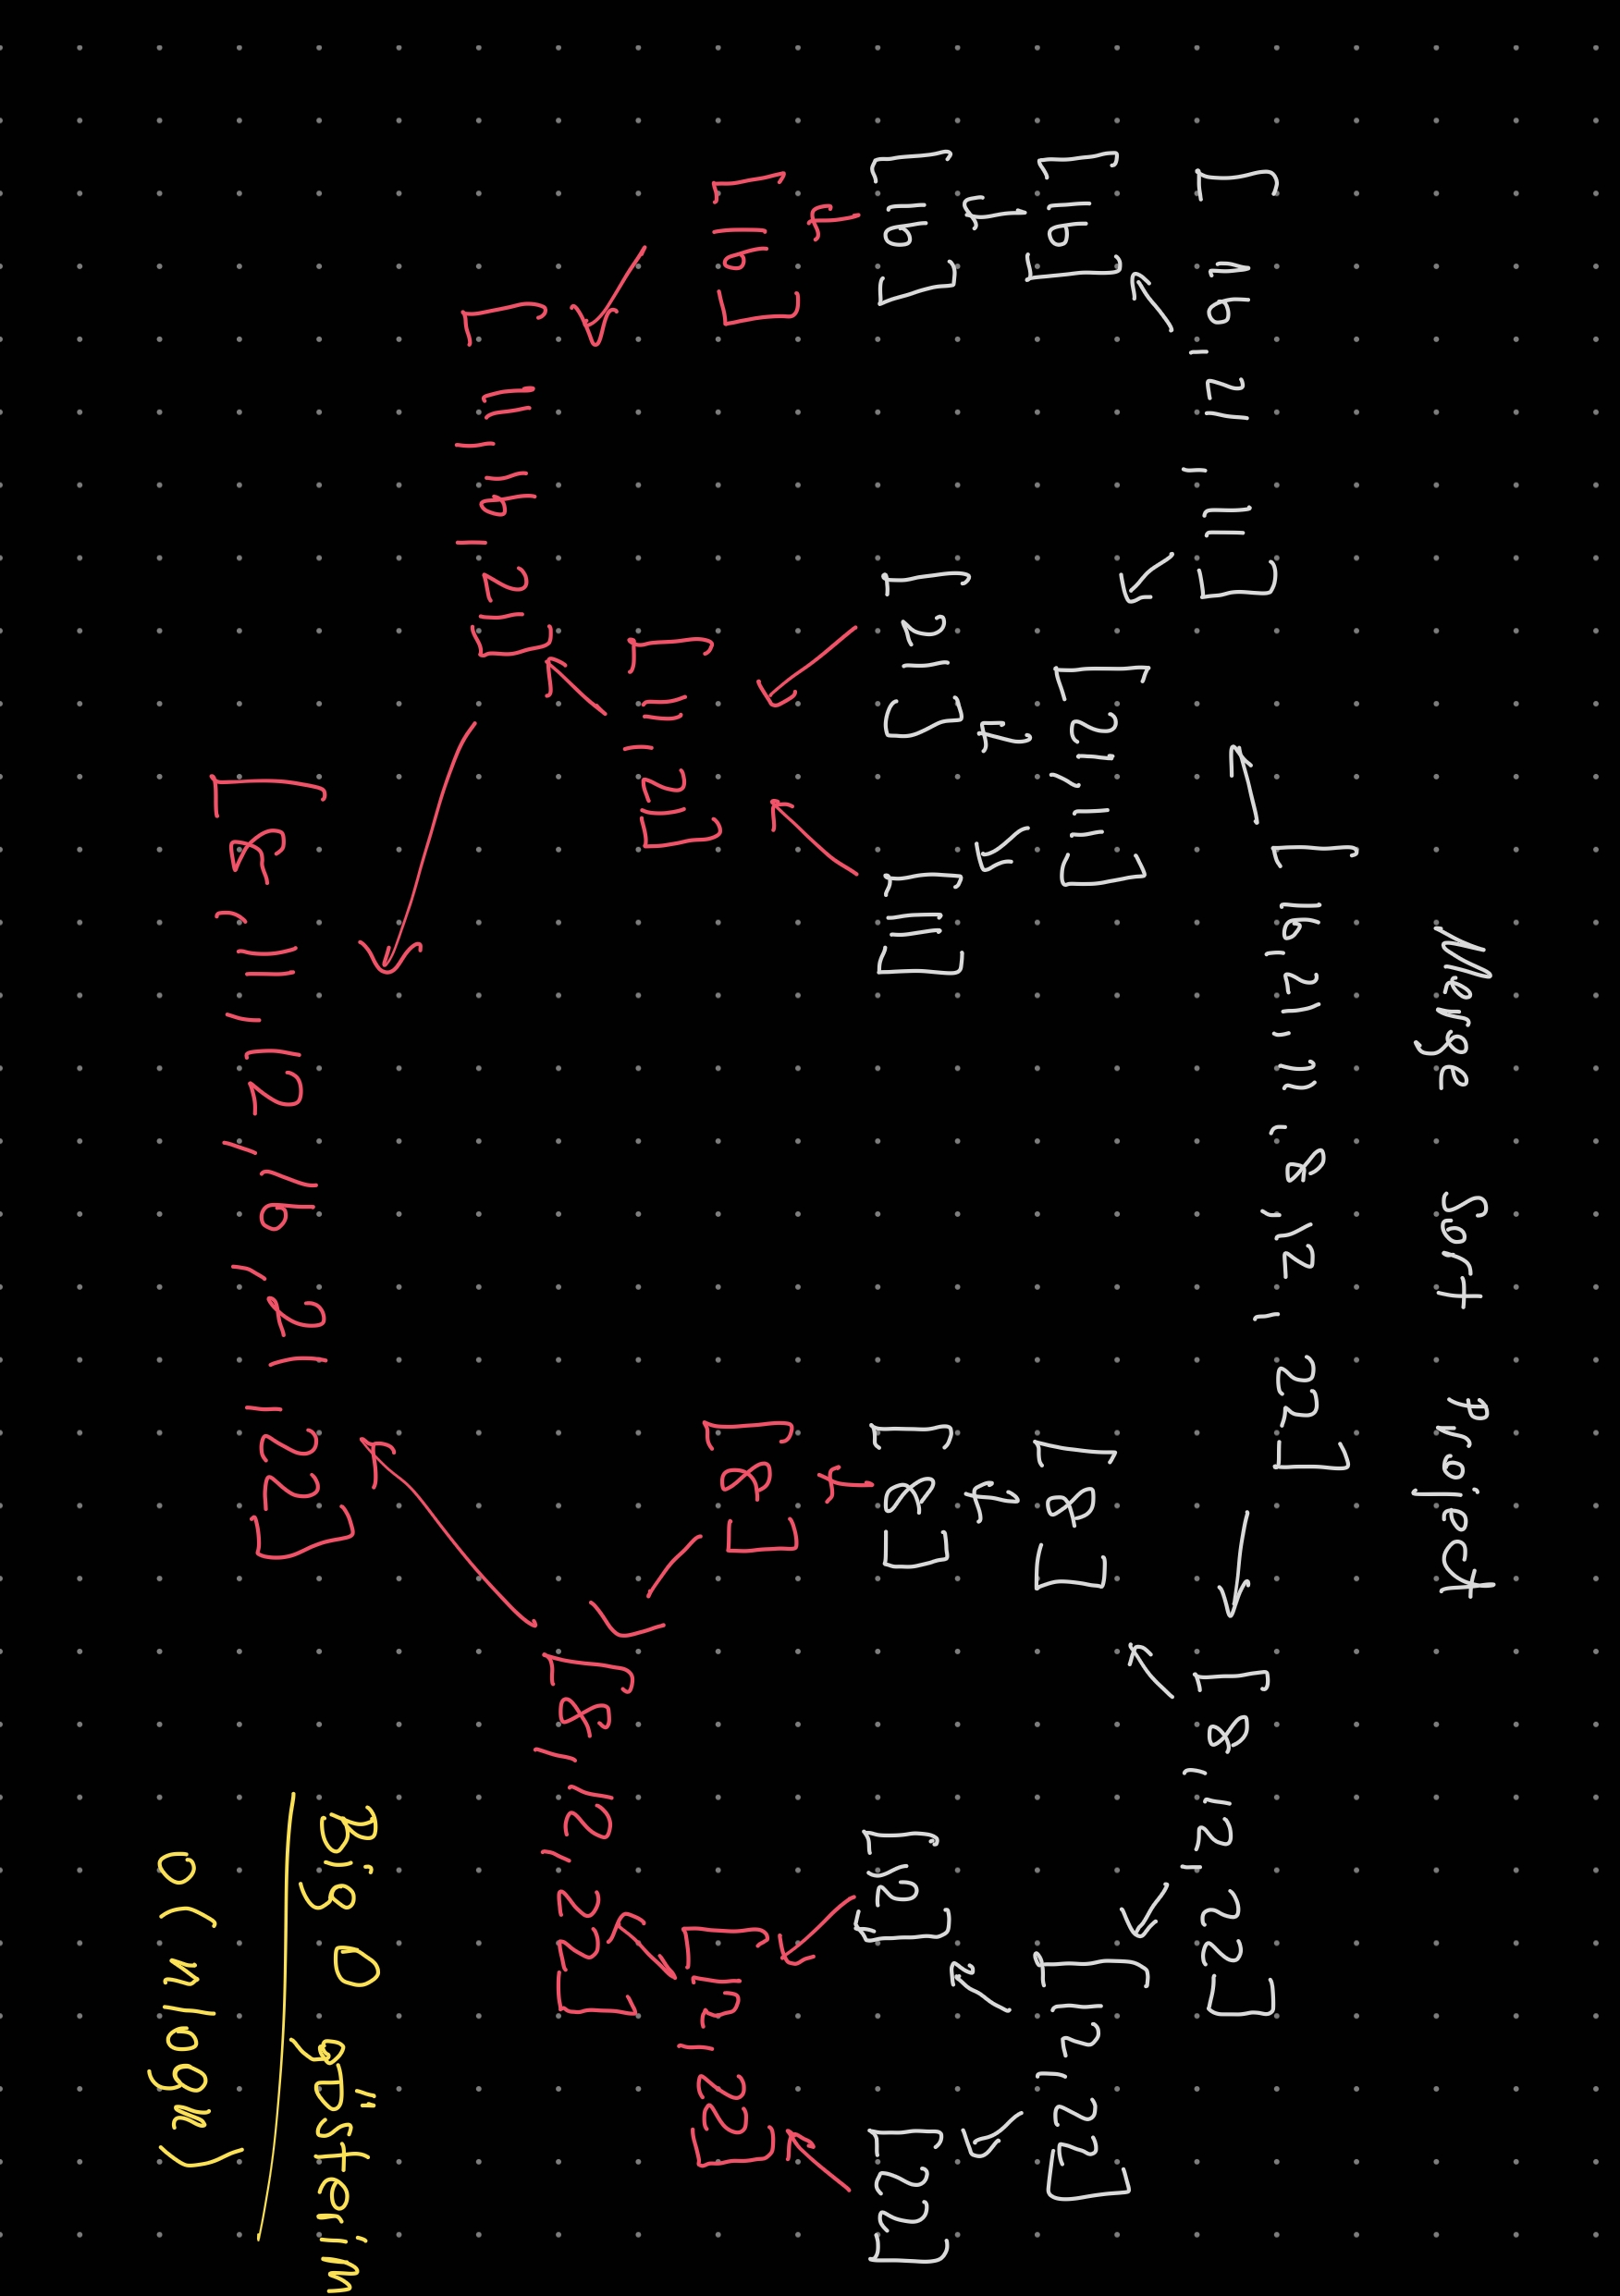 Merge Sort Project
[16,21,11,8,12,22]
[16,21,11] [8,12,22]
[16] [21,11] [8] [12,22]
[16] [21] [11] [8] [12] [22]
[16] [11,21] [8] [12,22]
[11,16,21] [8,12,22]
[8,11,12,16,21,22]
Big O gösterim
O(nlogn)